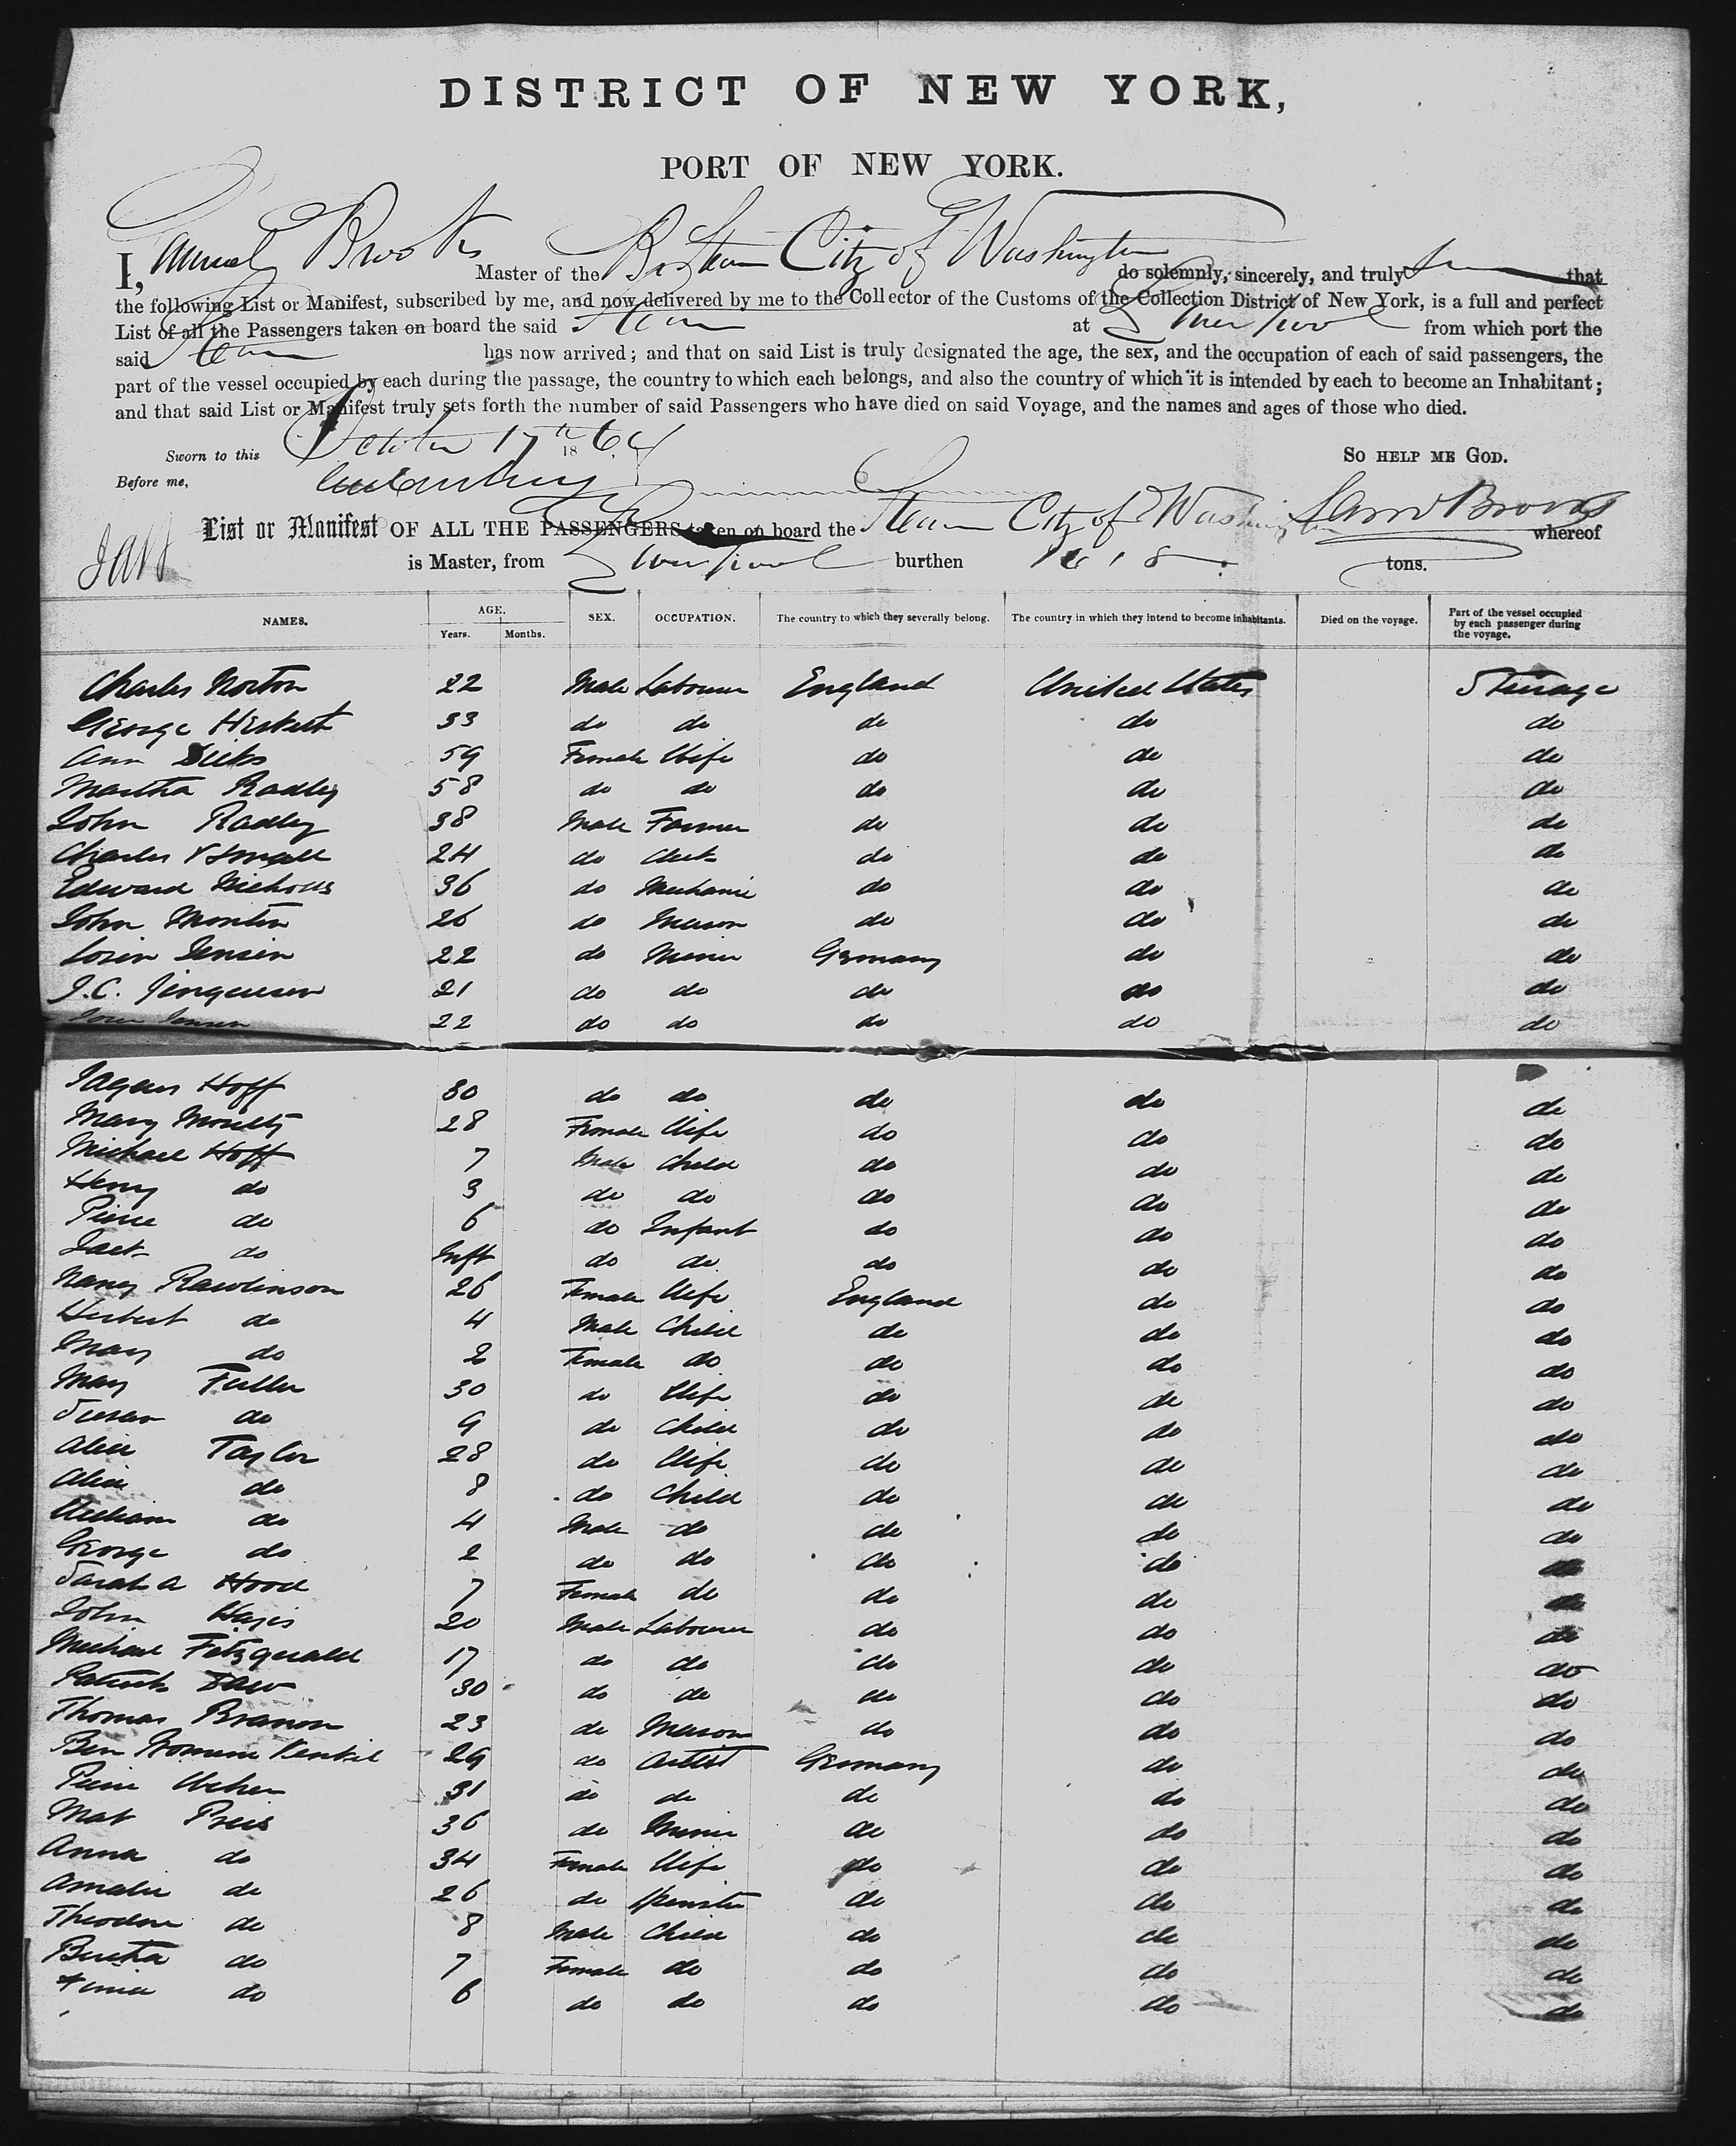 DISTRICT OF NEW YORK,
PORT OF NEW YORK.
I, Samuel Brooks Master of the Br Steam City of Washington do solemnly, sincerely, and truly that
the following List or Manifest, subscribed by me, and now delivered by me to the Collector of the Customs of the Collection District of New York, is a full and perfect
List of all the Passengers taken on board the said Steam at Liverpool from which port the
said Steam has now arrived; and that on said List is truly designated the age, the sex, and the occupation of each of said passengers, the
part of the vessel occupied by each during the passage, the country to which each belongs, and also the country of which it is intended by each to become an Inhabitant;
and that said List or Manifest truly sets forth the number of said Passengers who have died on said Voyage, and the names and ages of those who died.
Sworn to this October 17th 1864 SO HELP ME GOD.
Before me,
List or Manifest OF ALL THE PASSENGERS taken on board the Steam City of Washington Saml Brooks whereof
is Master, from Liverpool burthen tons.
NAMES. AGE. Years. Months. SEX. OCCUPATION. The country to which they severally belong. The country in which they intend to become inhabitants. Died on the voyage. Part of the vessel occupied by each passenger during the voyage.
Charles Norton 22 Male Labourer England United States Steerage
George Herbert 33 do do do do do
Ann Dicks 59 Female Wife do do do
Martha Radley 58 do do do do do
John Radley 38 Male Farmer do do do
Charles 24 do Clerk do do do
Edward Nicholls 36 do Mechanic do do do
John 26 do Mason do do do
Jensen 22 do Miner Germany do do
J.C. 21 do do do do do
Jensen 22 do do do do do
Hoff 30 do do do do do
Mary 28 Female Wife do do do
Michael Hoff 7 Male Child do do do
Henry do 3 do do do do do
Pierre do 6 do Infant do do do
Jack do Inft do do do do do
Nancy Rawlinson 26 Female Wife England do do
Herbert do 4 Male Child do do do
Mary do 2 Female do do do do
Mary Fuller 30 do Wife do do do
Susan do 9 do Child do do do
Alice Taylor 28 do Wife do do do
Alice do 8 do Child do do do
William do 4 Male do do do do
George do 2 do do do do do
Sarah A Hood 7 Female do do do do
John Hayes 20 Male Labourer do do do
Michael Fitzgerald 17 do do do do do
Patrick 30 do do do do do
Thomas Branon 23 do Mason do do do
Ben 29 do Artist Germany do do
Pierre Weber 31 do do do do do
Mat Preis 36 do Miner do do do
Anna do 34 Female Wife do do do
Amalie do 26 do Spinster do do do
Theodore do 8 Male Child do do do
Bertha do 7 Female do do do do
do 6 do do do do do